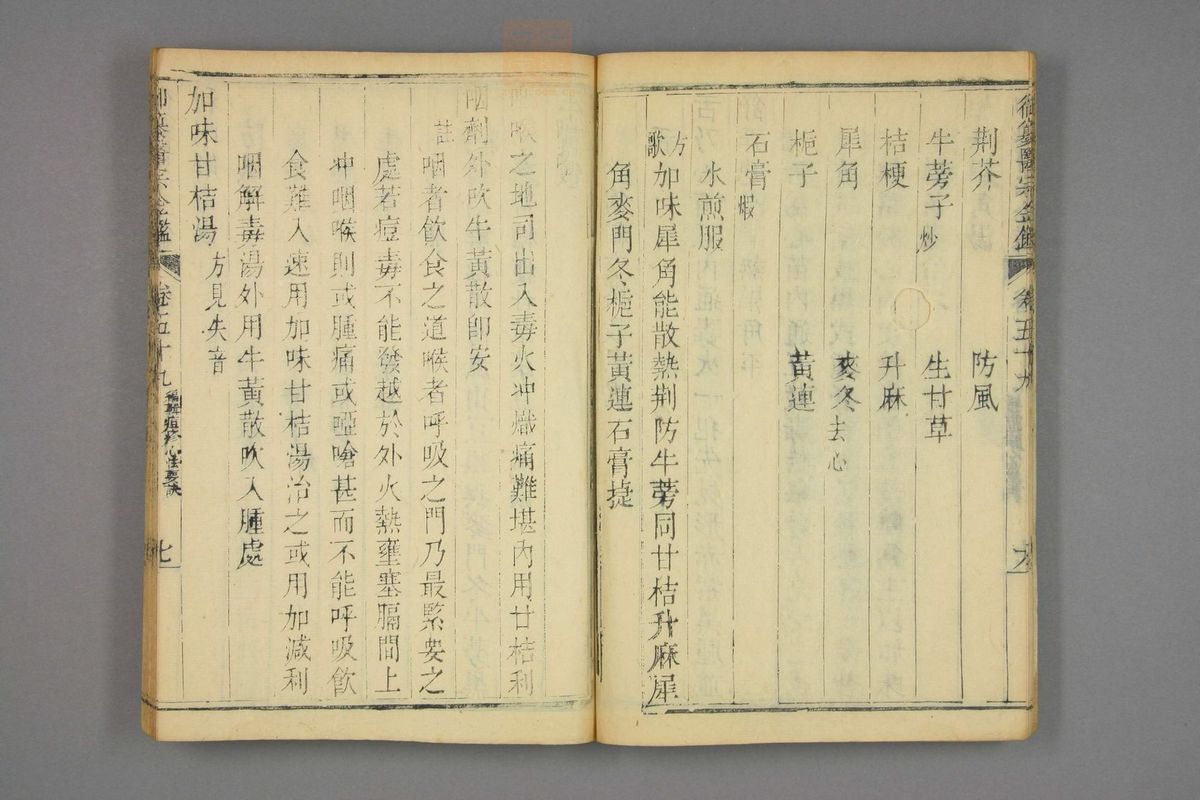 御纂醫宗金鑑 卷五十九 六
荆芥 防風
牛蒡子炒 生甘草
桔梗 升麻
犀角 麥冬去心
梔子 黃連
石膏煅
水煎服
方歌 加味犀角能散熱荆防牛蒡同甘桔升麻犀
角麥門冬梔子黃連石膏捷
喉之地司出入毒火冲熾痛難堪內用甘桔利
咽劑外吹牛黃散卽安
註 咽者飲食之道喉者呼吸之門乃最緊要之
處若痘毒不能發越於外火熱壅塞膈間上
冲咽喉則或腫痛或啞嗆甚而不能呼吸飲
食難入速用加味甘桔湯治之或用加減利
咽解毒湯外用牛黃散吹入腫處
加味甘桔湯 方見失音
御纂醫宗金鑑 卷五十九 種痘心法要訣 七